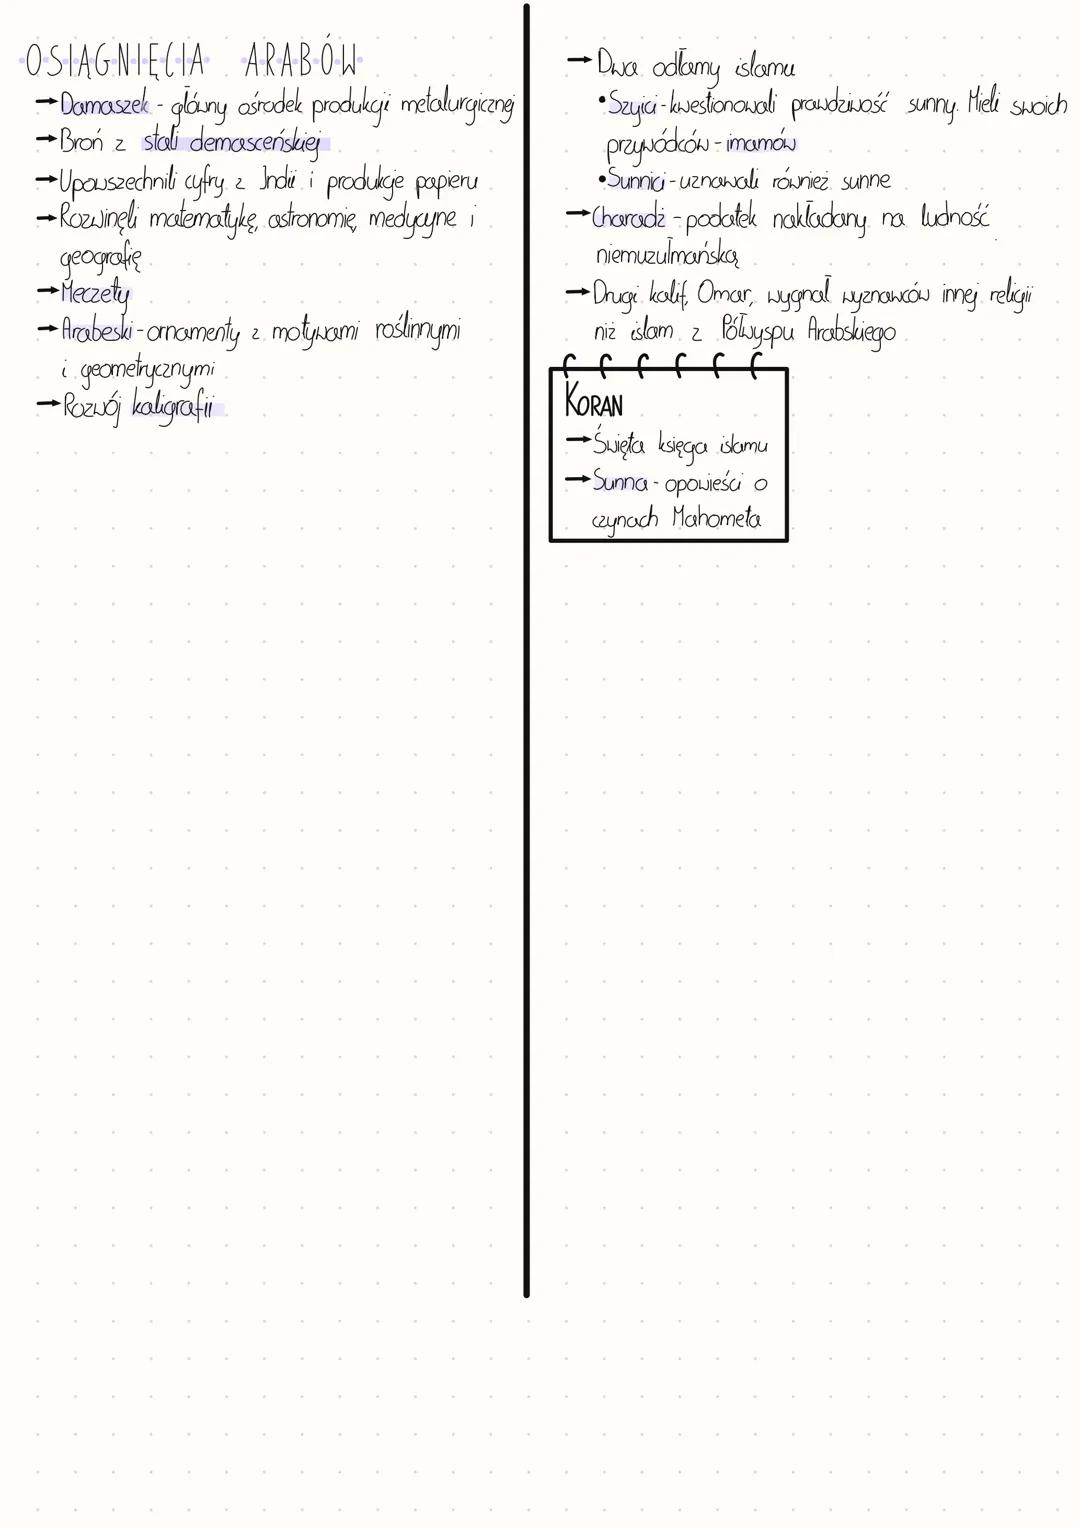 OSIĄGNIĘCIA ARABÓW
→Damaszek - główny ośrodek produkcji metalurgicznej
→Broń z stali demasceńskiej
→Upowszechnili cyfry z Indii i produkcje papieru
→Rozwinęli matematykę, astronomię, medycyne i
geografię
→Meczety
→Arabeski - ornamenty z motywami roślinnymi
i geometrycznymi
→Rozwój kaligrafii
→Dwa odłamy islamu
•Szyici - kwestionowali prawdziwość sunny. Mieli swoich
przywódców - imamów
•Sunnici - uznawali również sunne
→Charadż - podatek nakładany na ludność
niemuzułmańską
→Drugi kalif, Omar, wygnał wyznawców innej religii
niż islam z Półwyspu Arabskiego
KORAN
→Święta księga islamu
→Sunna - opowieści o
czynach Mahometa